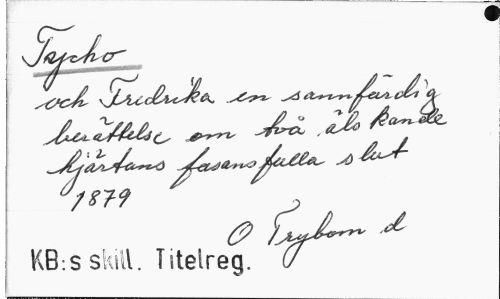 Tycho
och Fredrika en sannfärdig
berättelse om två älskande
hjärtans fasansfulla slut
1879
O Trybom d
KB:s skill. Titelreg.